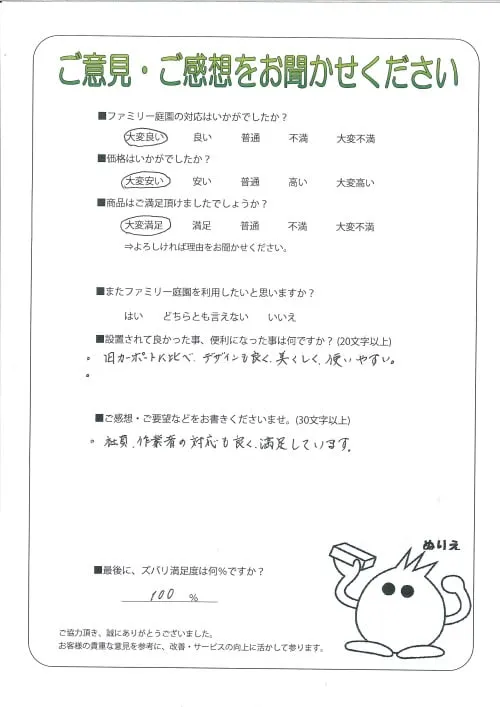 ご意見・ご感想をお聞かせください
■ファミリー庭園の対応はいかがでしたか？
大変良い 良い 普通 不満 大変不満
■価格はいかがでしたか？
大変安い 安い 普通 高い 大変高い
■商品はご満足頂けましたでしょうか？
大変満足 満足 普通 不満 大変不満
⇒よろしければ理由をお聞かせください。
■またファミリー庭園を利用したいと思いますか？
はい どちらとも言えない いいえ
■設置されて良かった事、便利になった事は何ですか？(20文字以上)
。旧カーポートに比べ、デザインも良く、美くしく、使いやすい。
。
■ご感想・ご要望などをお書きくださいませ。(30文字以上)
。社員、作業者の対応も良く、満足しています。
ぬりえ
■最後に、ズバリ満足度は何％ですか？
100 %
ご協力頂き、誠にありがとうございました。
お客様の貴重な意見を参考に、改善・サービスの向上に活かして参ります。